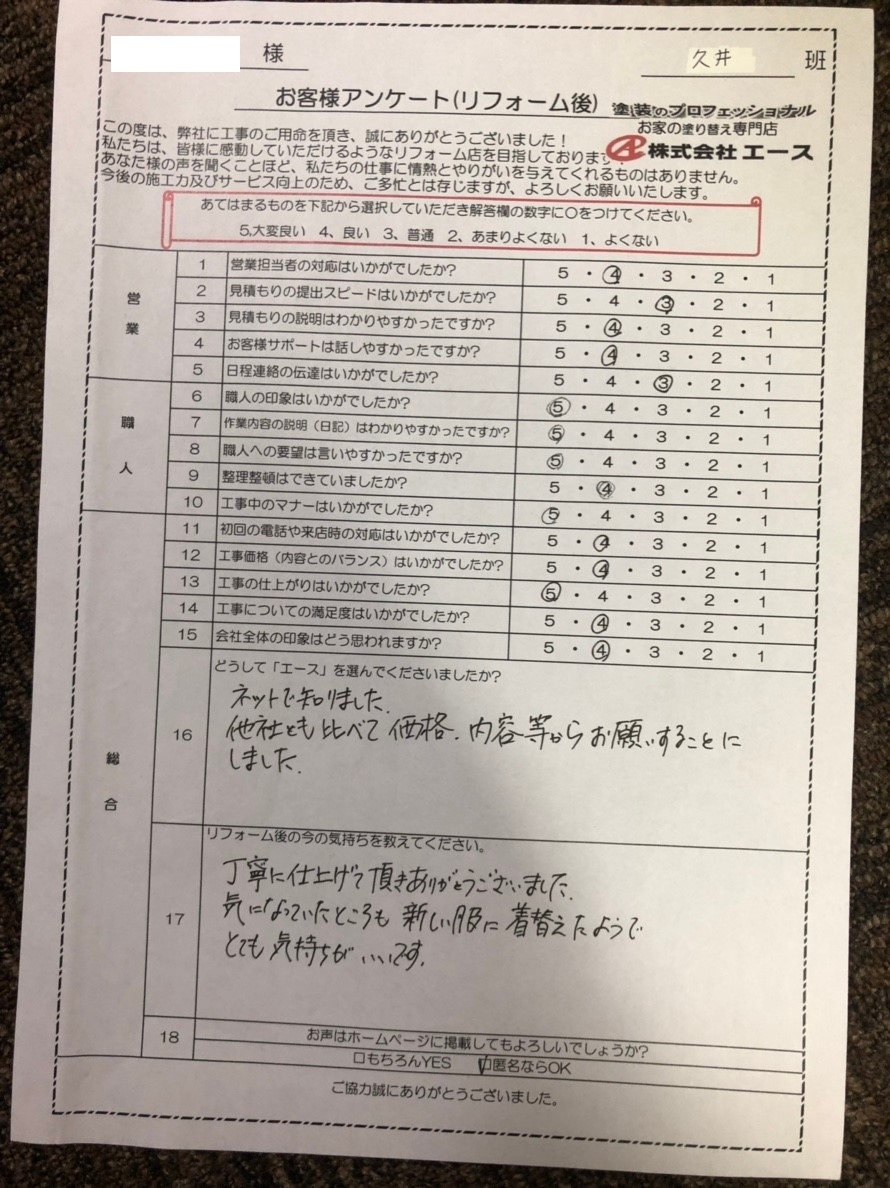 様
久井 班
お客様アンケート(リフォーム後)
塗装のプロフェッショナル
お家の塗り替え専門店
株式会社エース
この度は、弊社に工事のご用命を頂き、誠にありがとうございました！
私たちは、皆様に感動していただけるようなリフォーム店を目指しております。
あなた様の声を聞くことほど、私たちの仕事に情熱とやりがいを与えてくれるものはありません。
今後の施工力及びサービス向上のため、ご多忙とは存じますが、よろしくお願いいたします。
あてはまるものを下記から選択していただき解答欄の数字に○をつけてください。
5,大変良い 4、良い 3、普通 2、あまりよくない 1、よくない
営業
1 営業担当者の対応はいかがでしたか? 5・4・3・2・1
2 見積もりの提出スピードはいかがでしたか? 5・4・3・2・1
3 見積もりの説明はわかりやすかったですか? 5・4・3・2・1
4 お客様サポートは話しやすかったですか? 5・4・3・2・1
5 日程連絡の伝達はいかがでしたか? 5・4・3・2・1
職人
6 職人の印象はいかがでしたか? 5・4・3・2・1
7 作業内容の説明（日記）はわかりやすかったですか? 5・4・3・2・1
8 職人への要望は言いやすかったですか? 5・4・3・2・1
9 整理整頓はできていましたか? 5・4・3・2・1
10 工事中のマナーはいかがでしたか? 5・4・3・2・1
総合
11 初回の電話や来店時の対応はいかがでしたか? 5・4・3・2・1
12 工事価格（内容とのバランス）はいかがでしたか? 5・4・3・2・1
13 工事の仕上がりはいかがでしたか? 5・4・3・2・1
14 工事についての満足度はいかがでしたか? 5・4・3・2・1
15 会社全体の印象はどう思われますか? 5・4・3・2・1
16 どうして「エース」を選んでくださいましたか?
ネットで知りました.
他社とも比べて価格.内容等からお願いすることに
しました.
17 リフォーム後の今の気持ちを教えてください。
丁寧に仕上げて頂きありがとうございました.
気になっていたところも新しい服に着替えたようで
とても気持ちがいいです.
18 お声はホームページに掲載してもよろしいでしょうか?
□もちろんYES □匿名ならOK
ご協力誠にありがとうございました。